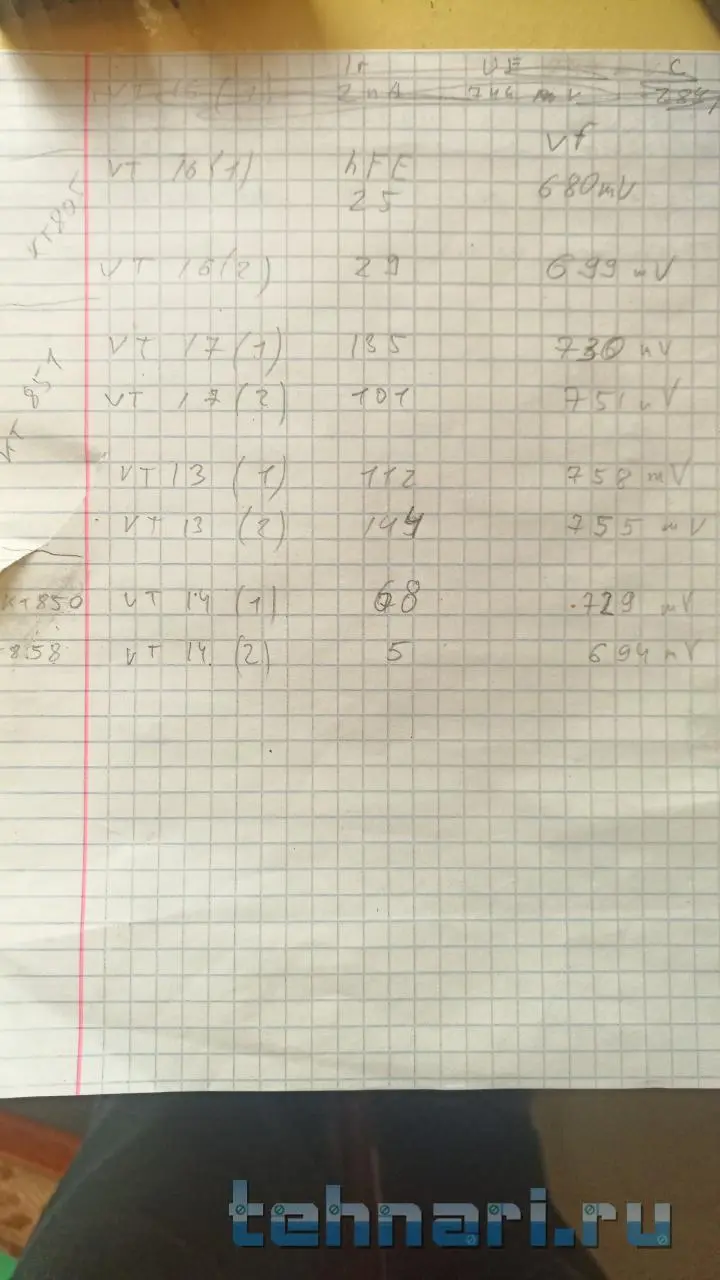 Ir UF C
VT 16 (1) 2 nA 744 mV 784
VT 16 (1) hFE Vf
25 680mV
КТ805
VT 16 (2) 29 699 mV
VT 17 (1) 135 730 mV
КТ 851
VT 17 (2) 101 751 mV
VT 13 (1) 112 758 mV
VT 13 (2) 144 755 mV
КТ850 VT 14 (1) 68 729 mV
858 VT 14 (2) 5 694 mV
tehnari.ru